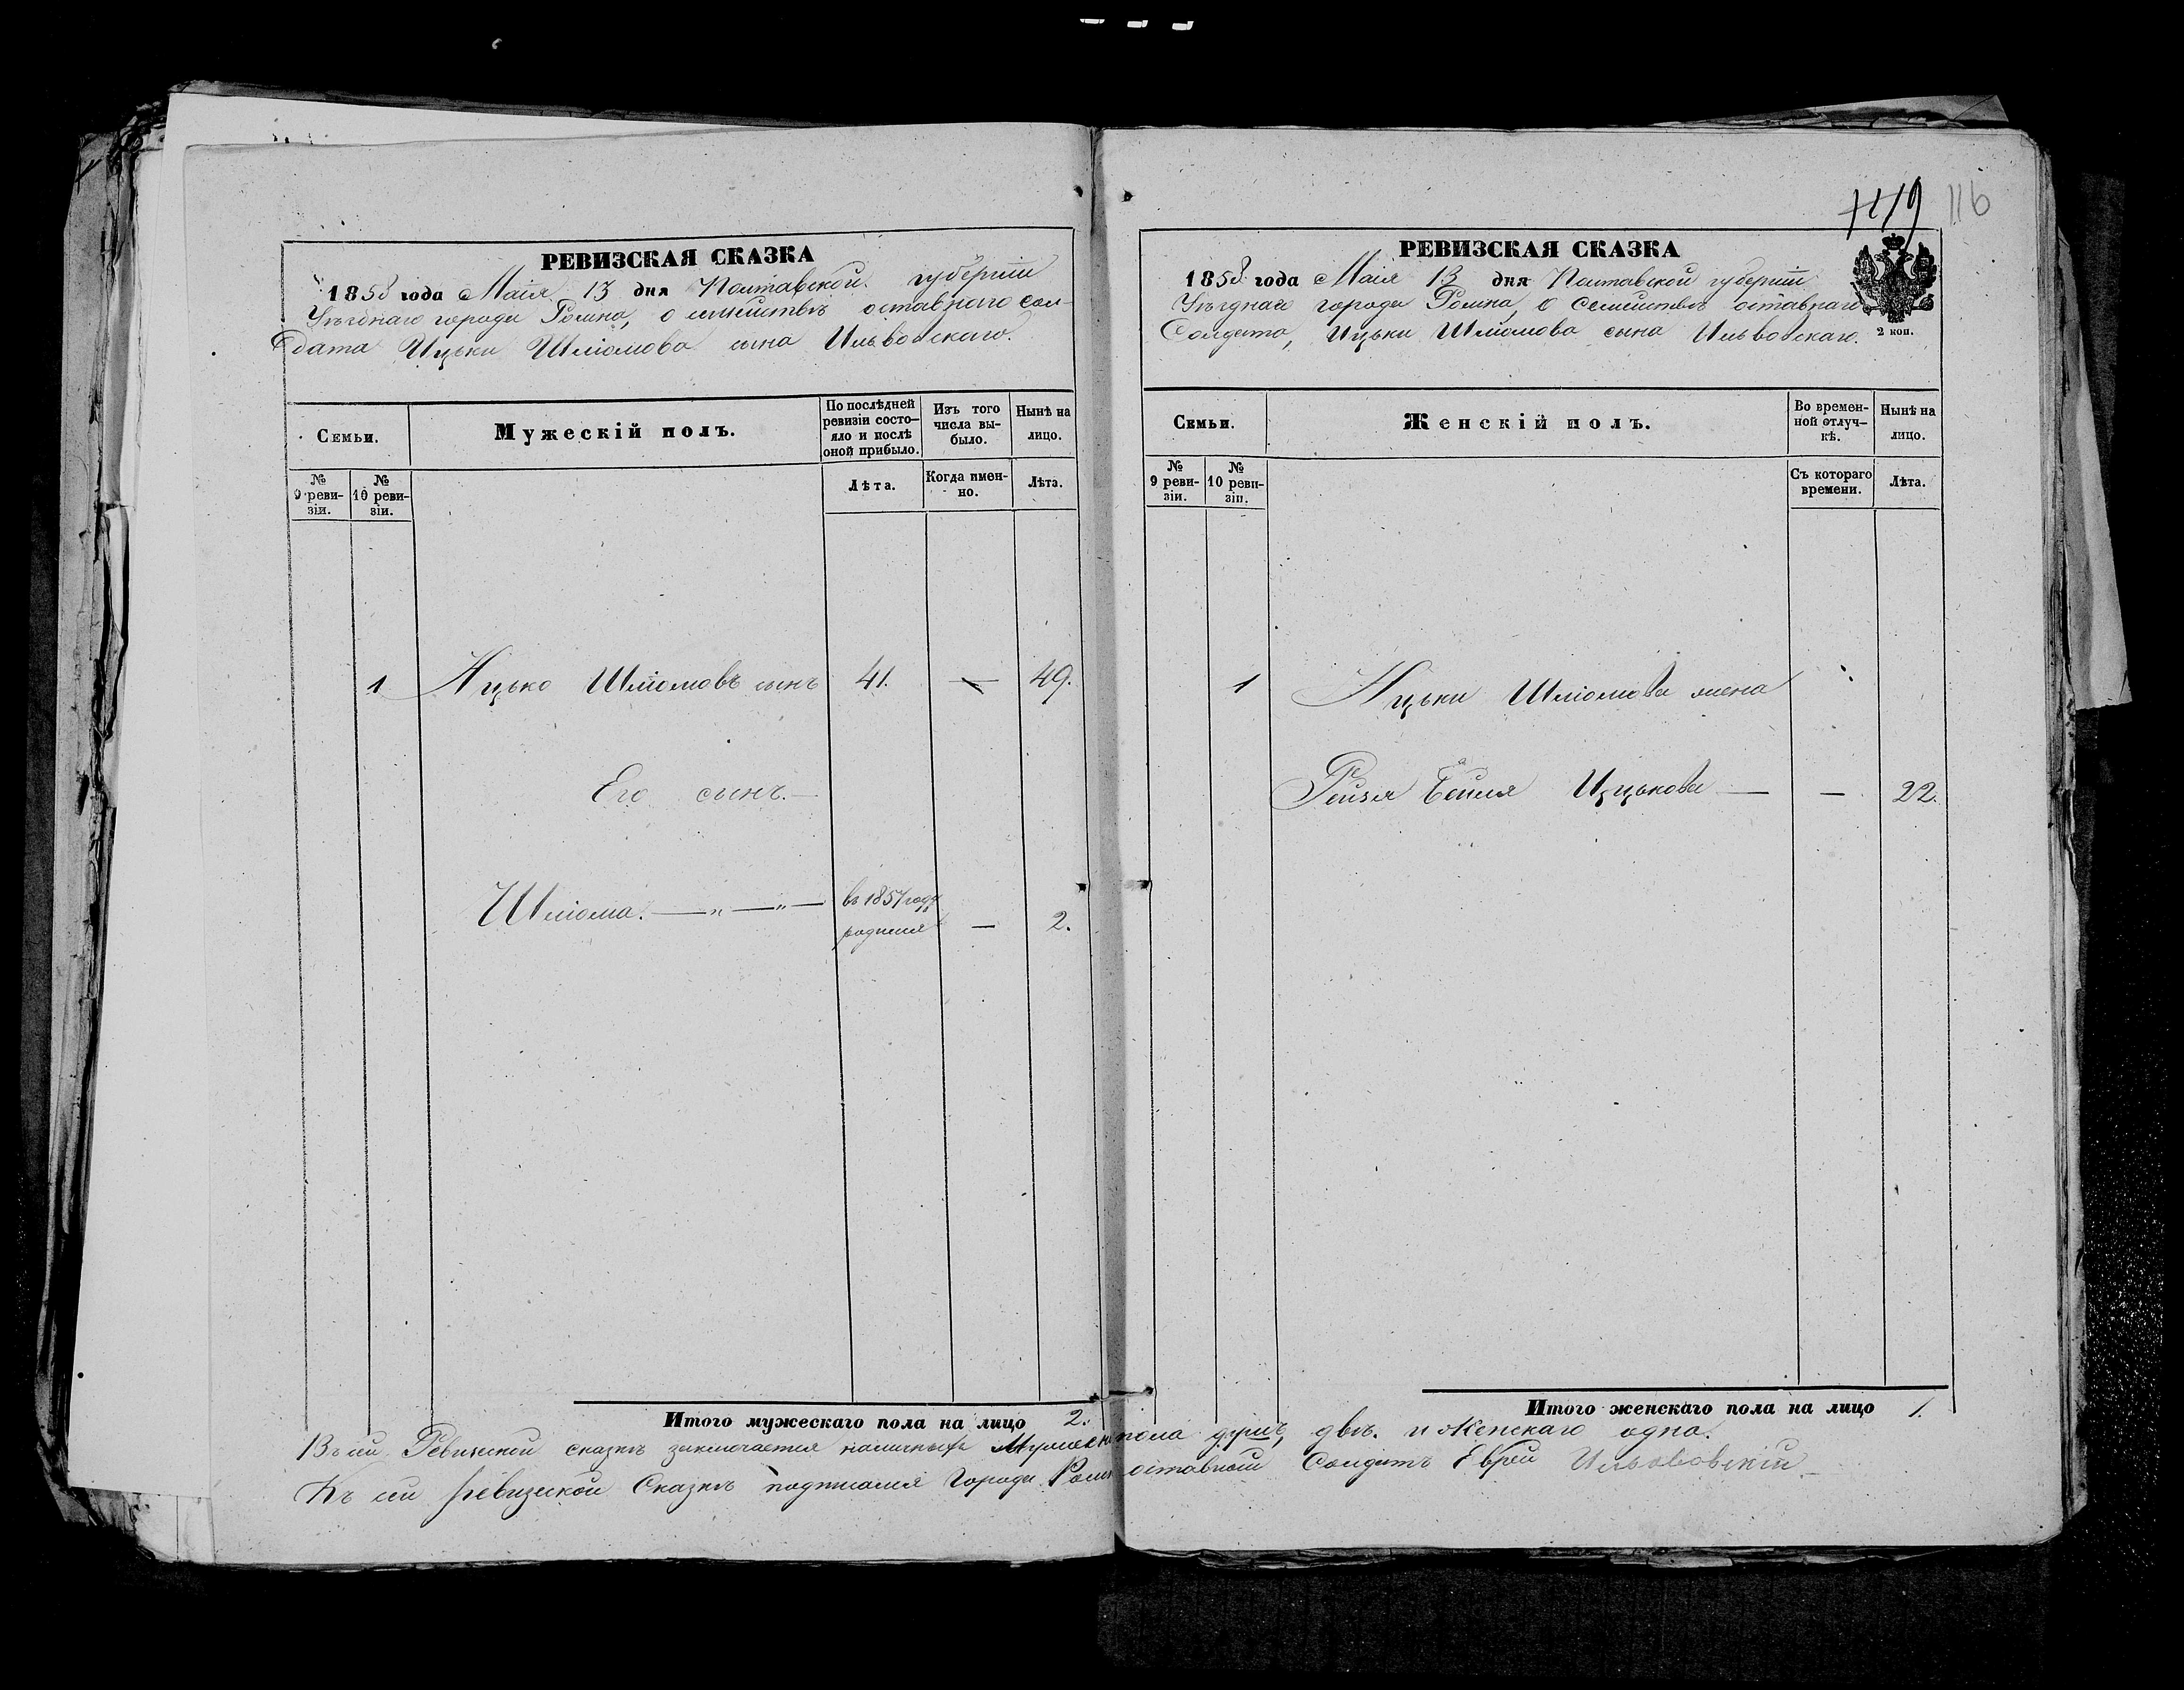 РЕВИЗСКАЯ СКАЗКА
1858 года Маія 13 дня Полтавской губерніи
Уѣзднаго города Ромна, о семействѣ отставнаго Сол-
дата Ицьки Шліомова сына Ильвовскаго.
Семьи.
Мужескій полъ.
По послѣдней ревизіи состо-яло и послѣ оной прибыло.
Изъ того числа вы-было.
Нынѣ на лицо.
№ 9 реви-зіи.
№ 10 реви-зіи.
Лѣта.
Когда имен-но.
Лѣта.
1 Ицько Шліомовъ сынъ 41. — 49.
Его сынъ. —
Шліома. — „ — „ — въ 1857 году
родился — 2.
Итого мужескаго пола на лицо 2.
119 116
РЕВИЗСКАЯ СКАЗКА
1858 года Маія 13 дня Полтавской губерніи
Уѣзднаго города Ромна, о Семействѣ отставнаго
Солдата, Ицьки Шліомова сына Ильвовскаго.
2 коп.
Семьи.
Женскій полъ.
Во времен-ной отлуч-кѣ.
Нынѣ на лицо.
№ 9 реви-зіи.
№ 10 реви-зіи.
Съ котораго времени.
Лѣта.
1 Ицьки Шліомова жена
Рейзя Бейля Ицькова — — 22.
Итого женскаго пола на лицо 1.
Въ сей Ревизской сказкѣ заключается наличныхъ Мужеск пола душъ двѣ. и Женскаго одна.
Къ сей ревизской Сказкѣ подписался Города Ромн отставной Солдатъ Еврей Ильвовскій